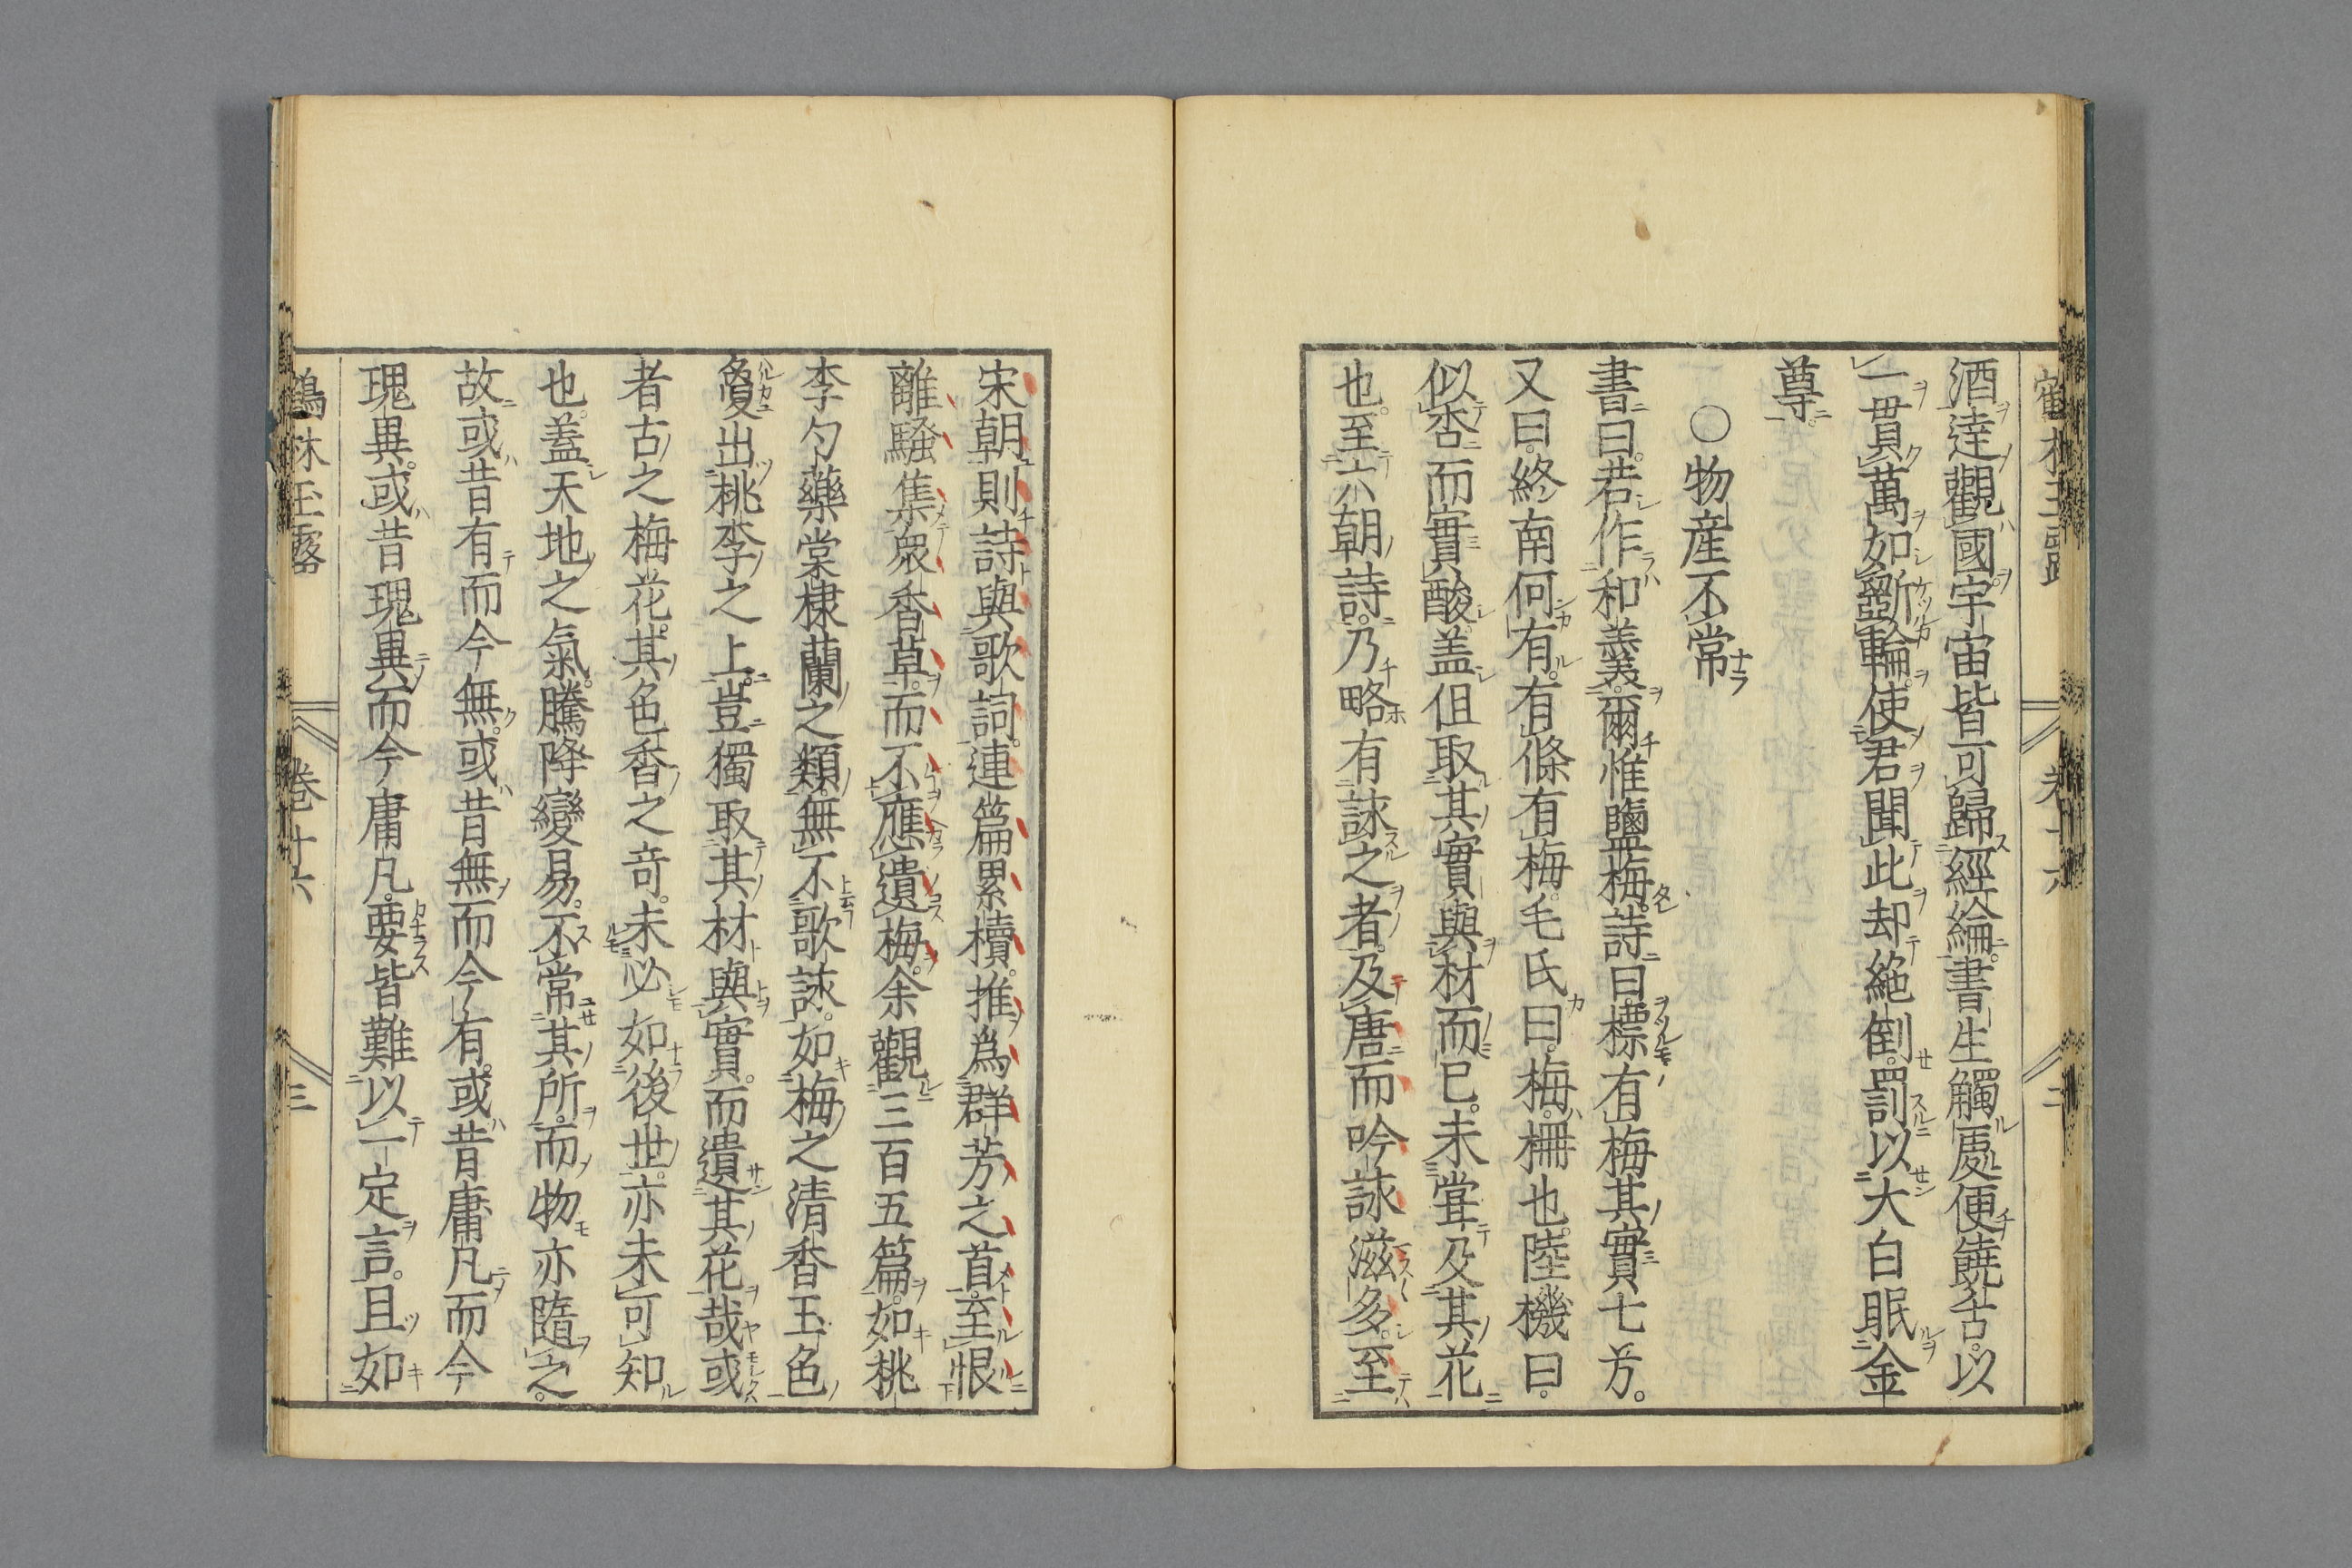 酒達觀國宇宙皆可歸經綸書生觸處便饒舌以
一貫萬如斵輪使君聞此却絕倒罰以大白眠金
尊
○物産不常
書曰若作和羹爾惟鹽梅詩曰摽有梅其實七兮
又曰終南何有有條有梅毛氏曰梅柟也陸機曰
似杏而實酸盖但取其實與材而已未甞及其花
也至六朝詩乃略有詠之者及唐而吟詠滋多至
宋朝則詩與歌詞連篇累牘推爲群芳之首至恨
離騷集衆香草而不應遺梅余觀三百五篇如桃
李勺藥棠棣蘭之類無不歌詠如梅之清香玉色
敻出桃李之上豈獨取其材與實而遺其花哉或
者古之梅花其色香之奇未必如後世亦未可知
也蓋天地之氣騰降變易不常其所而物亦隨之
故或昔有而今無或昔無而今有或昔庸凡而今
瑰異或昔瑰異而今庸凡要皆難以一定言且如
鶴林玉露　卷十六　三